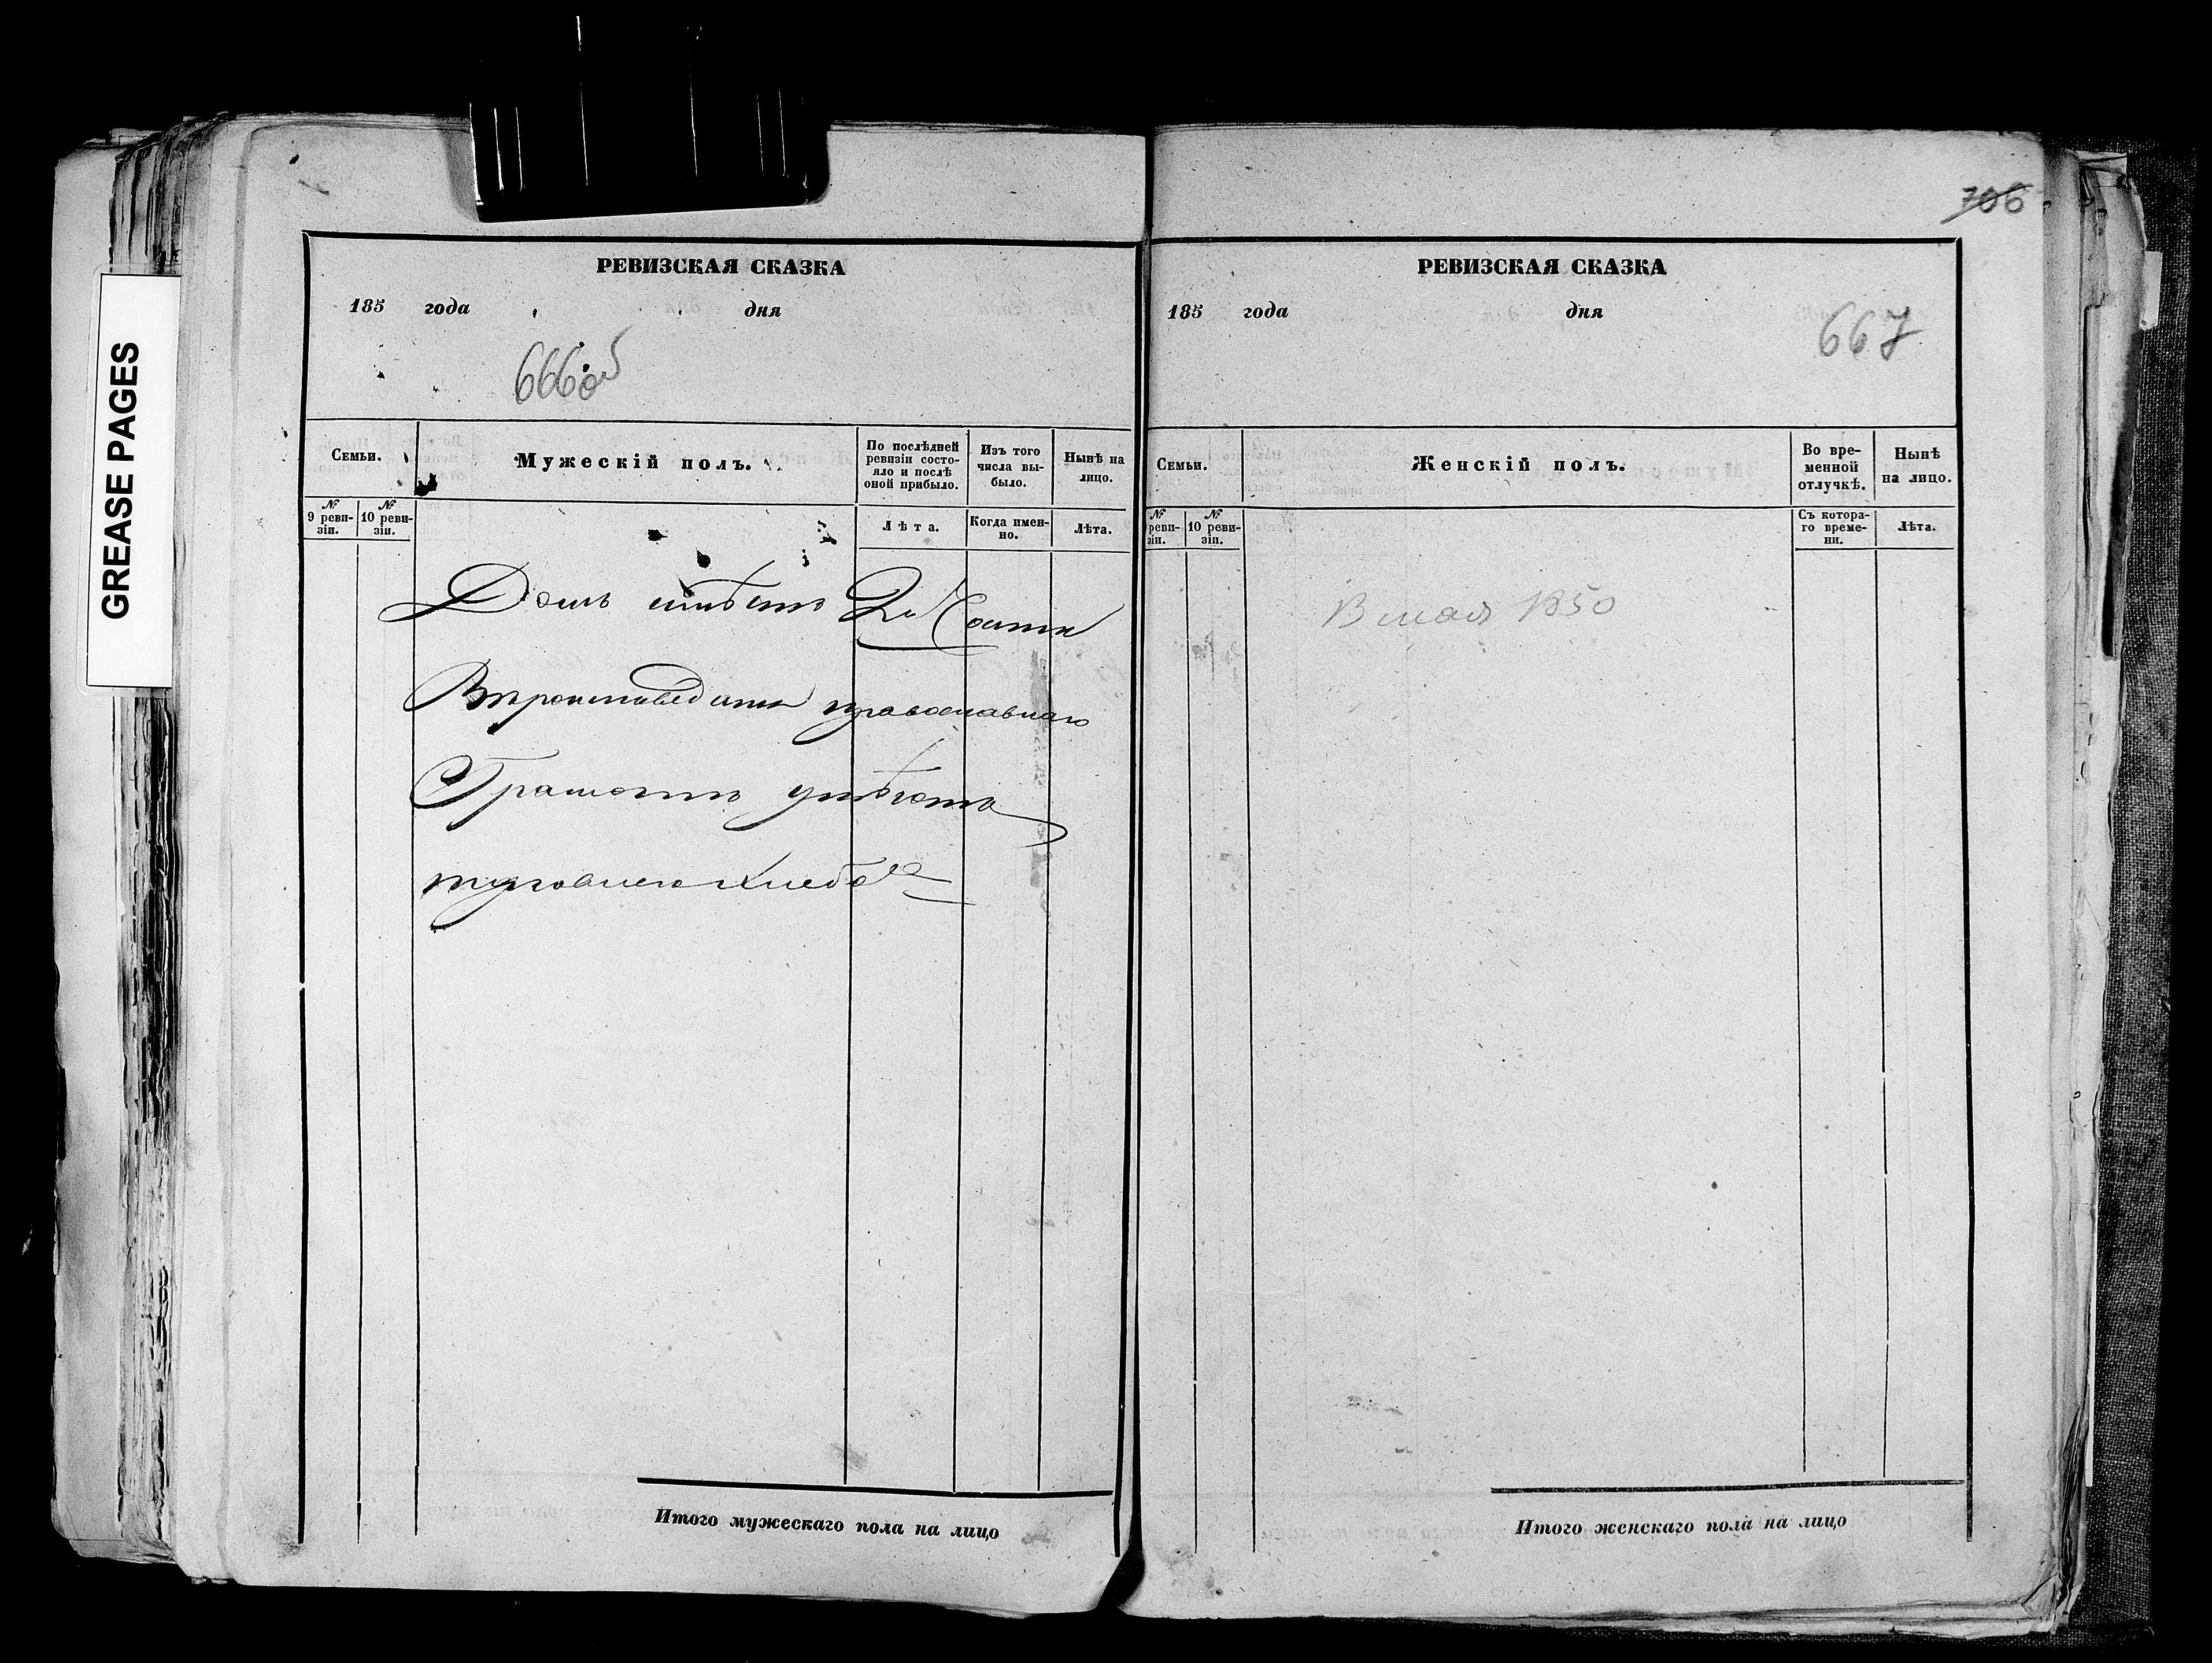 GREASE PAGES
РЕВИЗСКАЯ СКАЗКА
185 года дня
666об
Семьи.
Мужескій полъ.
По послѣдней ревизіи состояло и послѣ оной прибыло.
Изъ того числа выбыло.
Нынѣ на лицо.
№ 9 ревизіи.
№ 10 ревизіи.
Лѣта.
Когда именно.
Лѣта.
Домъ имѣетъ 2й Части
Вѣроисповѣданія православнаго
Грамотѣ умѣетъ
торговлею хлебо
Итого мужескаго пола на лицо
706
РЕВИЗСКАЯ СКАЗКА
185 года дня
667
Семьи.
Женскій полъ.
Во временной отлучкѣ.
Нынѣ на лицо.
№ ревизіи.
№ 10 ревизіи.
Съ котораго времени.
Лѣта.
В мая 1850
Итого женскаго пола на лицо